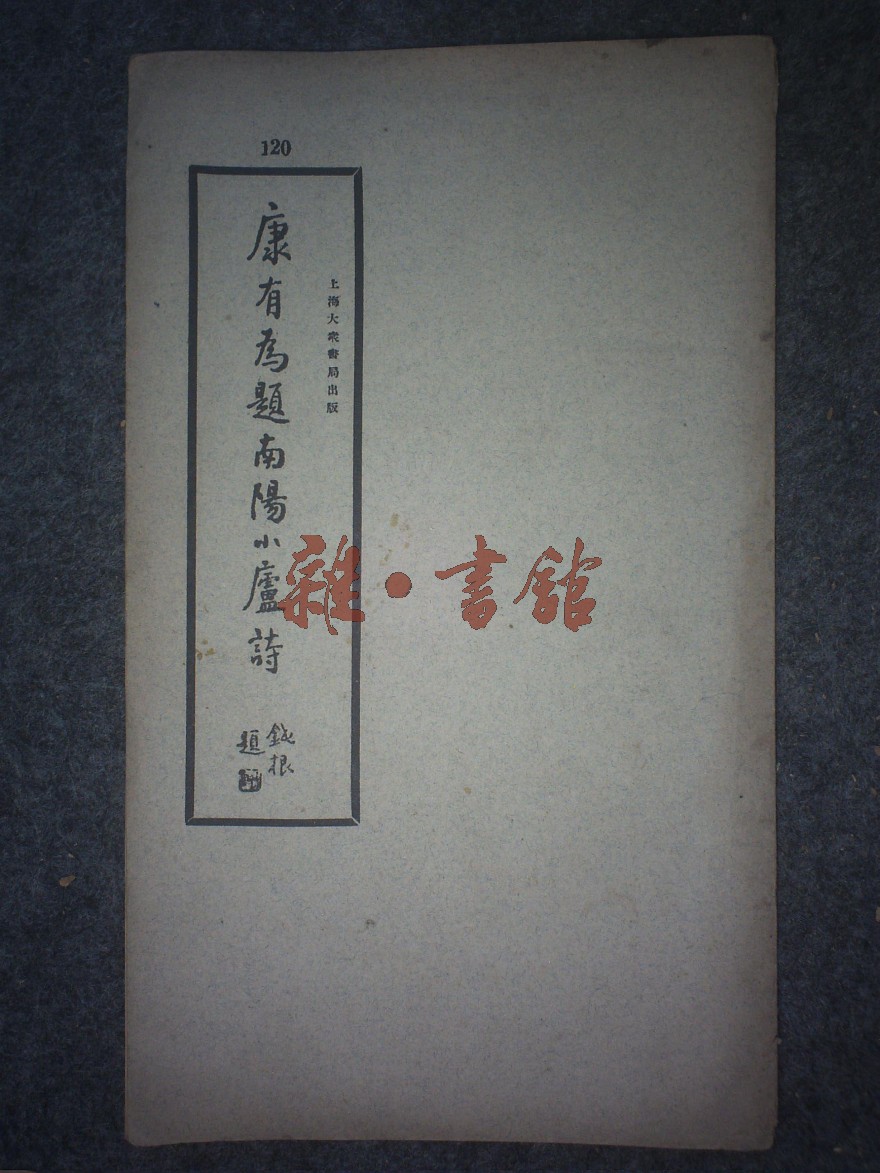 120
上海大衆書局出版
康有為題南陽小廬詩
鉞根
題
雜·書館